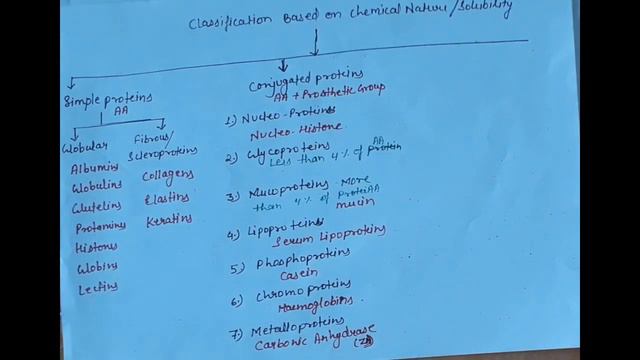 Classification Based on Chemical Nature/Solubility
Simple proteins
AA
Globular
Albumins
Globulins
Glutelins
Protamins
Histones
Globins
Lectins
Fibrous/
Scleroproteins
Collagens
Elastins
Keratins
Conjugated proteins
AA + Prosthetic Group
1) Nucleo-Proteins
Nucleo-Histone
2) Glycoproteins
Less than 4% of AA
3) Mucoproteins - More
than 4% of AA
mucin
4) Lipoproteins
Serum Lipoproteins
5) Phosphoproteins
Casein
6) Chromoproteins
Haemoglobins
7) Metalloproteins
Carbonic Anhydrase